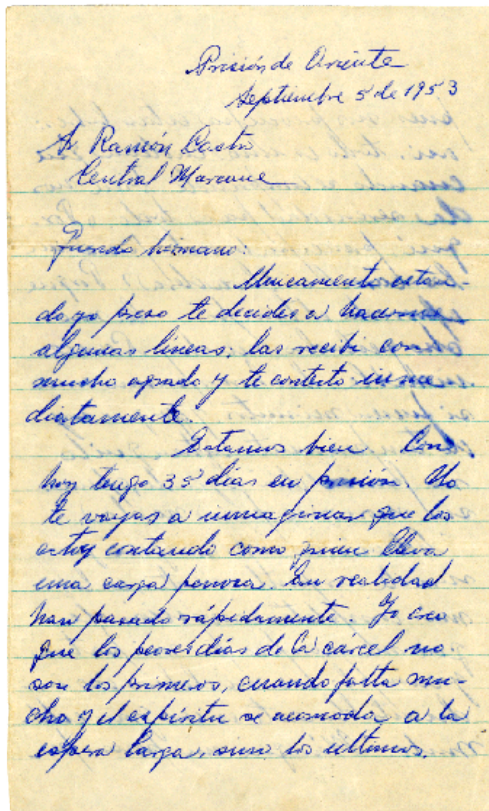 Prisión de Oriente
Septiembre 5 de 1953
Sr. Ramón Castro
Central Marcane
Querido hermano:
Unicamente estan-
do yo preso te decides a hacerme
algunas lineas; las recibi con
mucho agrado y te contesto inme
diatamente.
Estamos bien. Con
hoy tengo 35 días en prisión. No
te vayas a immaginar que los
estoy contando como quien lleva
una carga penosa. En realidad
han pasado rápidamente. Yo creo
que los peores días de la cárcel no
son los primeros, cuando falta mu-
cho y el espíritu se acomoda a la
espera larga, sino los ultimos.